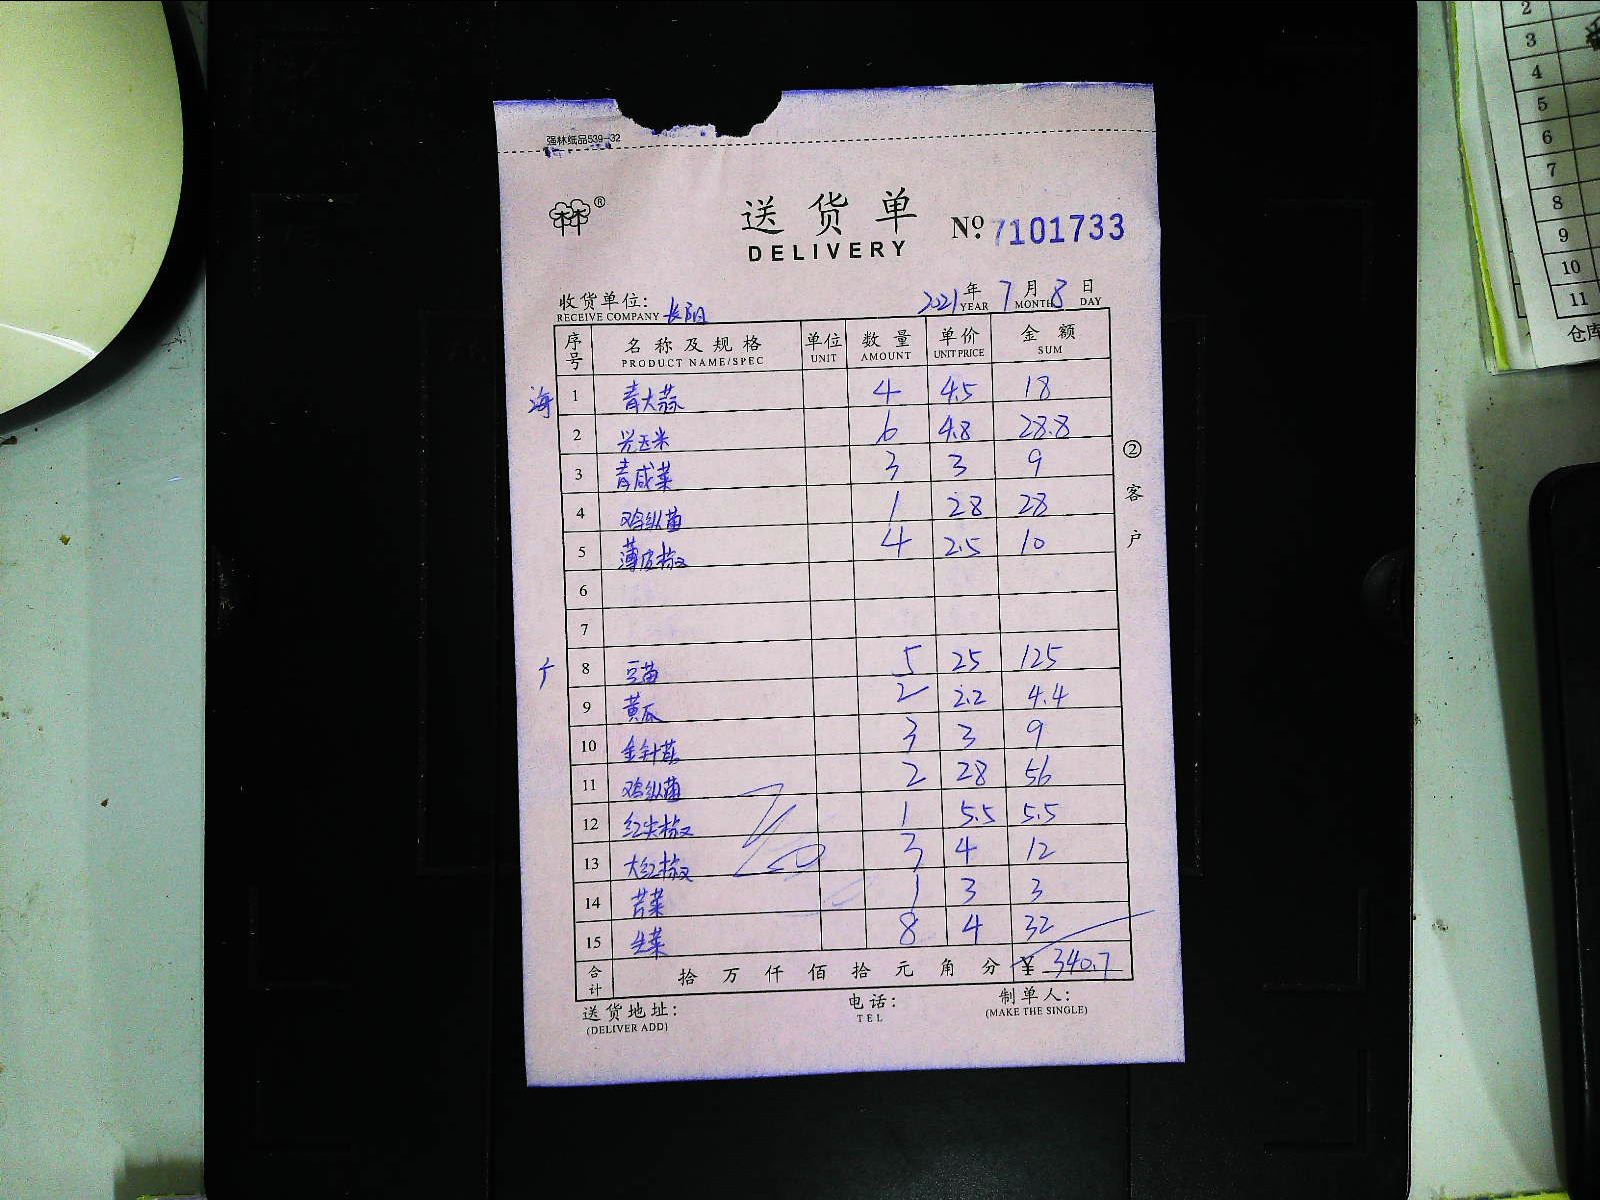 强林纸品539-32
林®
送货单
DELIVERY
No. 7101733
收货单位: 长阳 2021年 7月 8日
RECEIVE COMPANY YEAR MONTH DAY
序号 名称及规格 单位 数量 单价 金额
PRODUCT NAME/SPEC UNIT AMOUNT UNIT PRICE SUM
海 1 青大蒜 4 4.5 18
2 光玉米 6 4.8 28.8
3 青咸菜 3 3 9
4 鸡纵菌 1 28 28
5 薄皮椒 4 2.5 10
6
7
8 豆苗 5 25 125
9 黄瓜 2 2.2 4.4
10 金针菇 3 3 9
11 鸡纵菌 2 28 56
12 红尖椒 1 5.5 5.5
13 大红椒 3 4 12
14 芹菜 1 3 3
15 生菜 8 4 32
合计 拾万仟佰拾元角分 ¥ 340.7
送货地址: 电话: 制单人:
(DELIVER ADD) TEL (MAKE THE SINGLE)
②客户
2
3
4
5
6
7
8
9
10
11
仓库